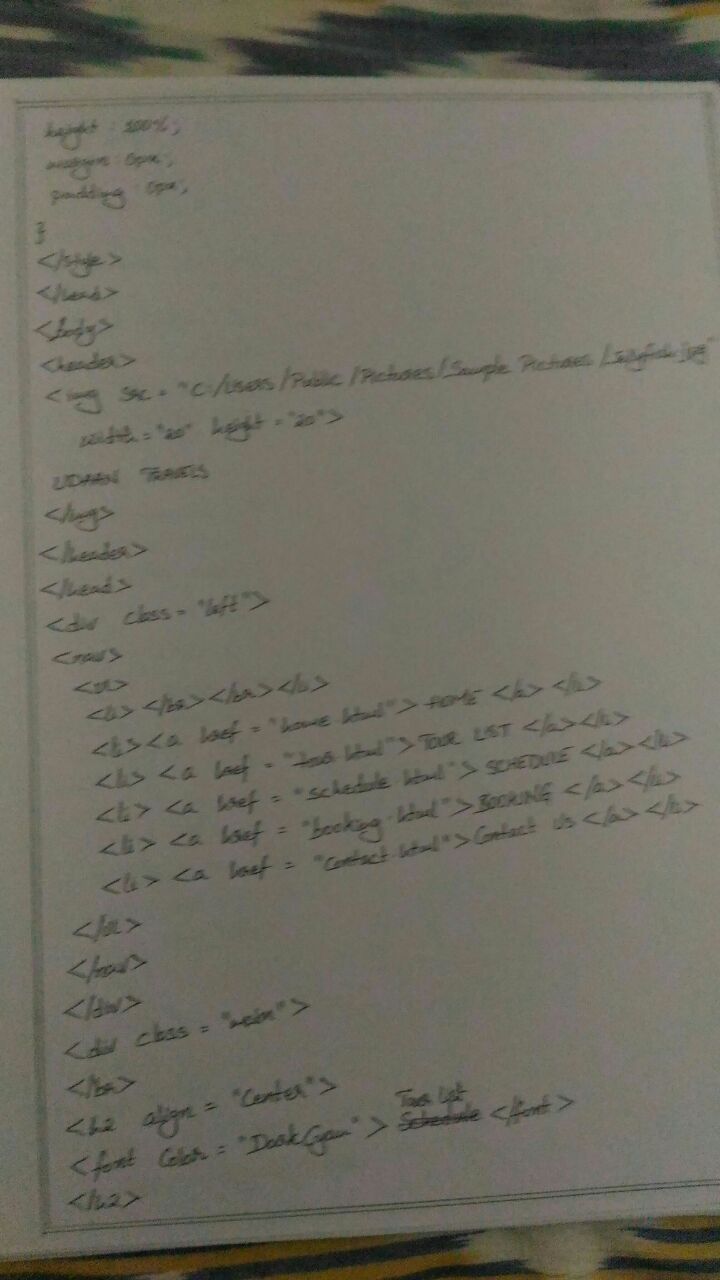 height : 100%;
margin : 0px;
padding : 0px;
}
</style>
</head>
<body>
<header>
<img src = "C:/Users/Public/Pictures/Sample Pictures/Jellyfish.jpg"
width="20" height = "20">
UDAAN TRAVELS
</img>
</header>
</head>
<div class = "left">
<nav>
<ul>
<li> </br></br></li>
<li><a href = "home.html"> HOME </a> </li>
<li> <a href = "tour.html"> TOUR LIST </a></li>
<li> <a href = "schedule.html"> SCHEDULE </a> </li>
<li> <a href = "booking.html"> BOOKING </a> </li>
<li> <a href = "Contact.html"> Contact Us </a> </li>
</ul>
</nav>
</div>
<div class = "main">
</br>
<h2 align = "Center">
Tour List
<font Color = "DarkCyan"> Schedule </font>
</h2>